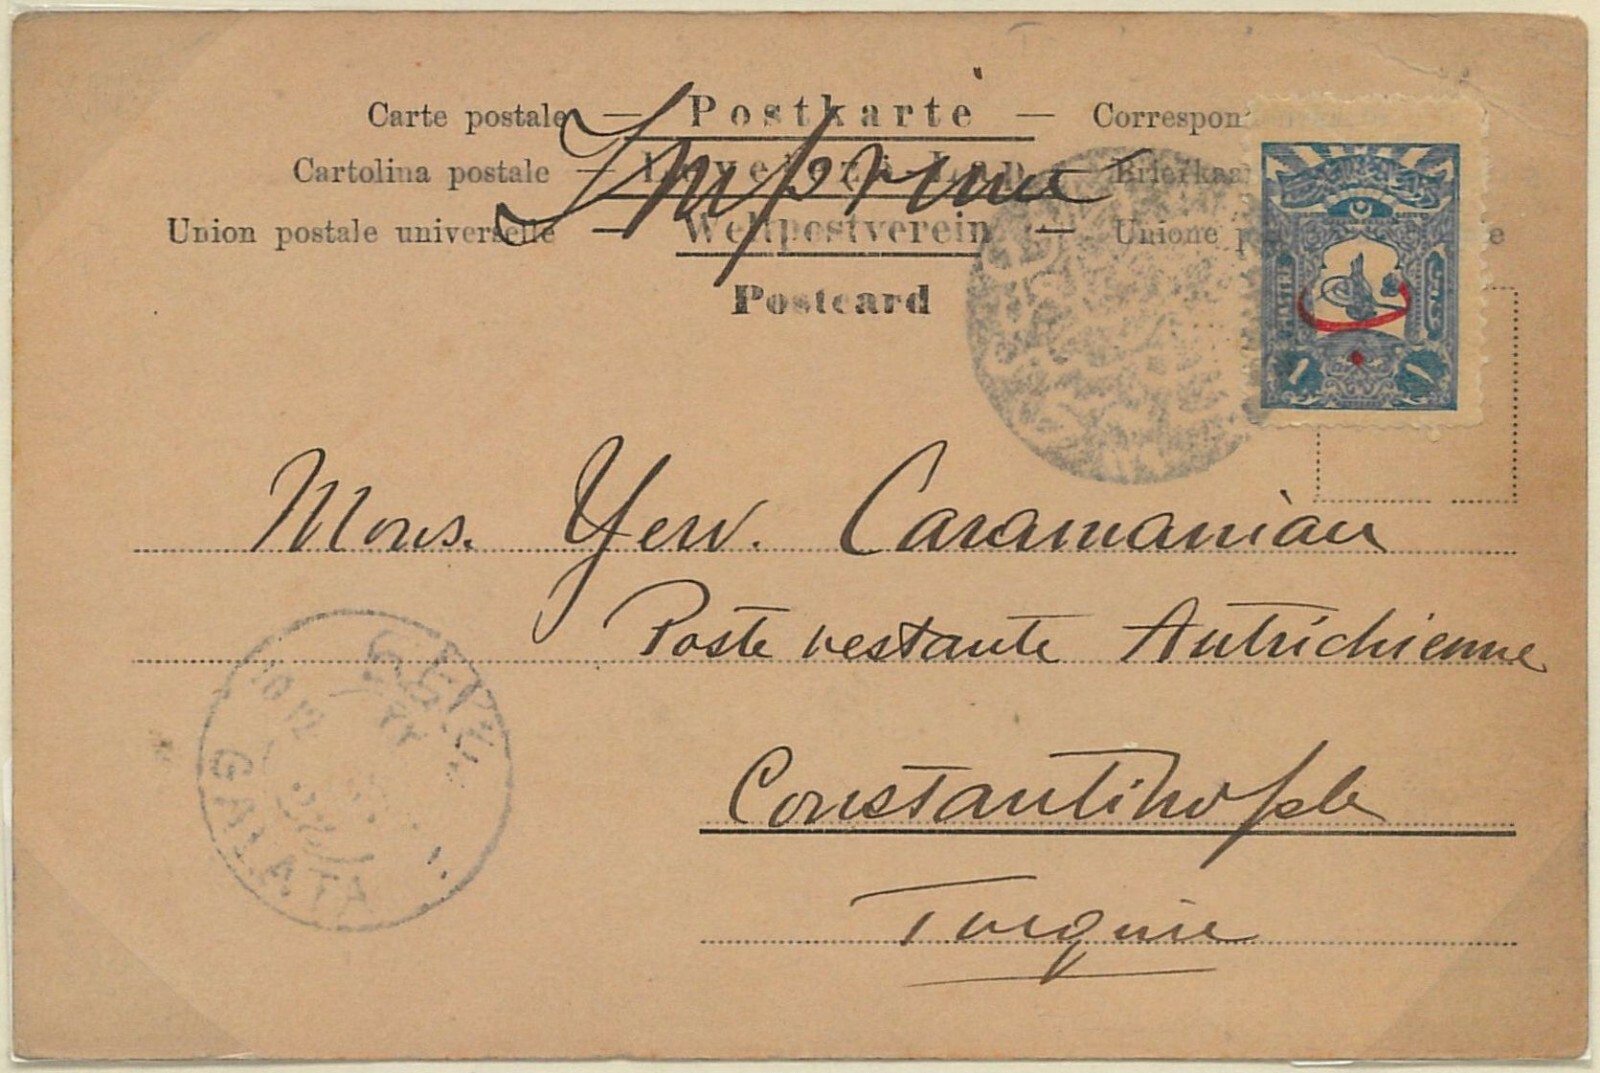 Carte postale — Postkarte — Correspon
Cartolina postale — Levelező-Lap — Briefkaa
Union postale universelle — Weltpostverein — Unione p e
Postcard
Imprimé
PIASTRE
١ ١
Mons. Yerv. Caramanian
Poste restante Autrichienne
Constantinople
Turquie
10 12
GALATA